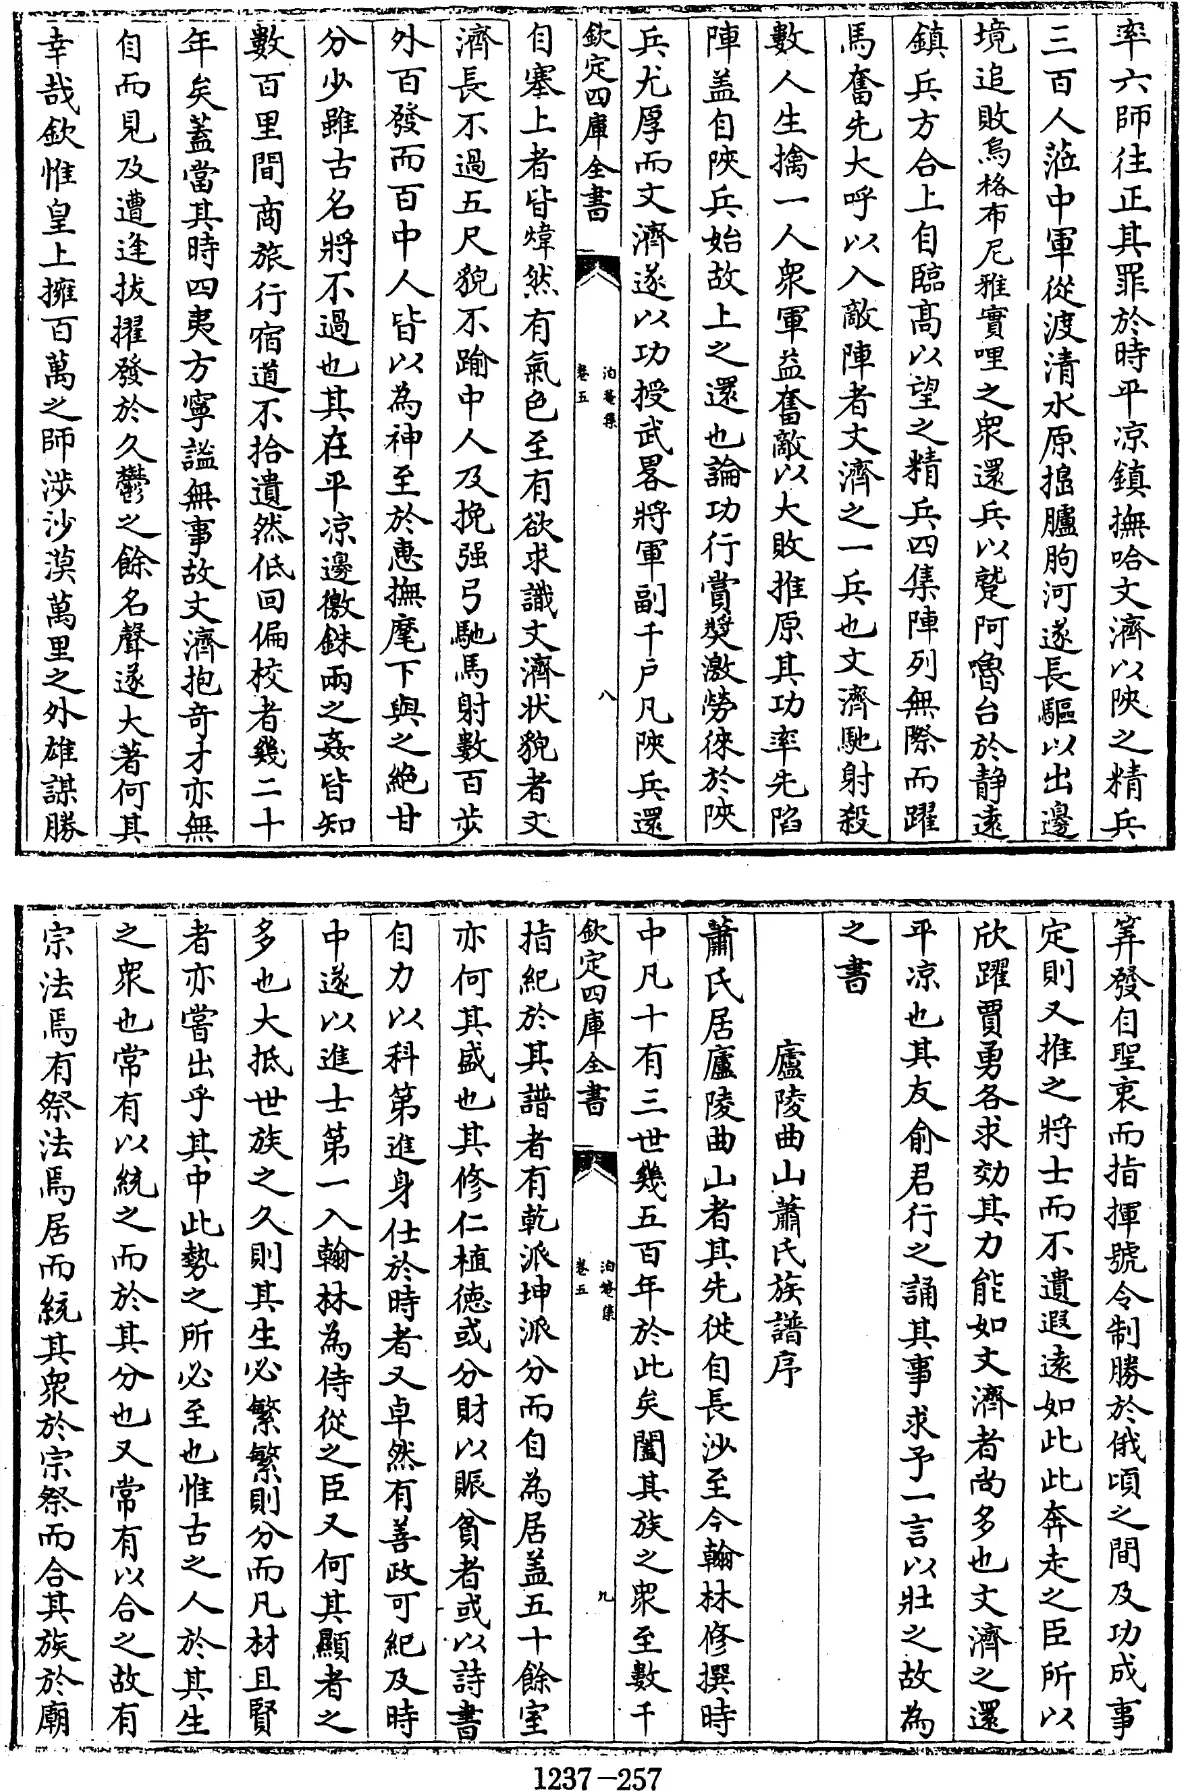 率六師往正其罪於時平凉鎮撫哈文濟以陜之精兵
三百人涖中軍從渡清水原搗臚朐河遂長驅以出邊
境追敗烏格布尼雅實哩之衆還兵以蹵阿嚕台於静遠
鎮兵方合上自臨髙以望之精兵四集陣列無際而躍
馬奮先大呼以入敵陣者文濟之一兵也文濟馳射殺
數人生擒一人衆軍益奮敵以大敗推原其功率先陷
陣盖自陜兵始故上之還也論功行賞奬激勞徠於陜
兵尤厚而文濟遂以功授武畧將軍副千户凡陜兵還
欽定四庫全書
泊菴集
卷五
八
自塞上者皆煒然有氣色至有欲求識文濟状貌者文
濟長不過五尺貌不踰中人及挽强弓馳馬射數百步
外百發而百中人皆以為神至於惠撫麾下與之絶甘
分少雖古名將不過也其在平凉邊徼銖兩之姦皆知
數百里間商旅行宿道不拾遺然低回偏校者幾二十
年矣蓋當其時四夷方寧謐無事故文濟抱奇才亦無
自而見及遭逢拔擢發於久鬱之餘名聲遂大著何其
幸哉欽惟皇上擁百萬之師涉沙漠萬里之外雄謀勝
筭發自聖衷而指揮號令制勝於俄頃之間及功成事
定則又推之將士而不遺遐遠如此此奔走之臣所以
欣躍賈勇各求効其力能如文濟者尚多也文濟之還
平凉也其友俞君行之誦其事求予一言以壯之故為
之書
廬陵曲山蕭氏族譜序
蕭氏居廬陵曲山者其先從自長沙至今翰林修撰時
中凡十有三世幾五百年於此矣闔其族之衆至數千
欽定四庫全書
泊菴集
卷五
九
指紀於其譜者有乾派坤派分而自為居盖五十餘室
亦何其盛也其修仁植德或分財以賑貧者或以詩書
自力以科第進身仕於時者又卓然有善政可紀及時
中遂以進士第一入翰林為侍從之臣又何其顯者之
多也大抵世族之久則其生必繁繁則分而凡材且賢
者亦嘗出乎其中此勢之所必至也惟古之人於其生
之衆也常有以統之而於其分也又常有以合之故有
宗法焉有祭法焉居而統其衆於宗祭而合其族於廟
1237－257